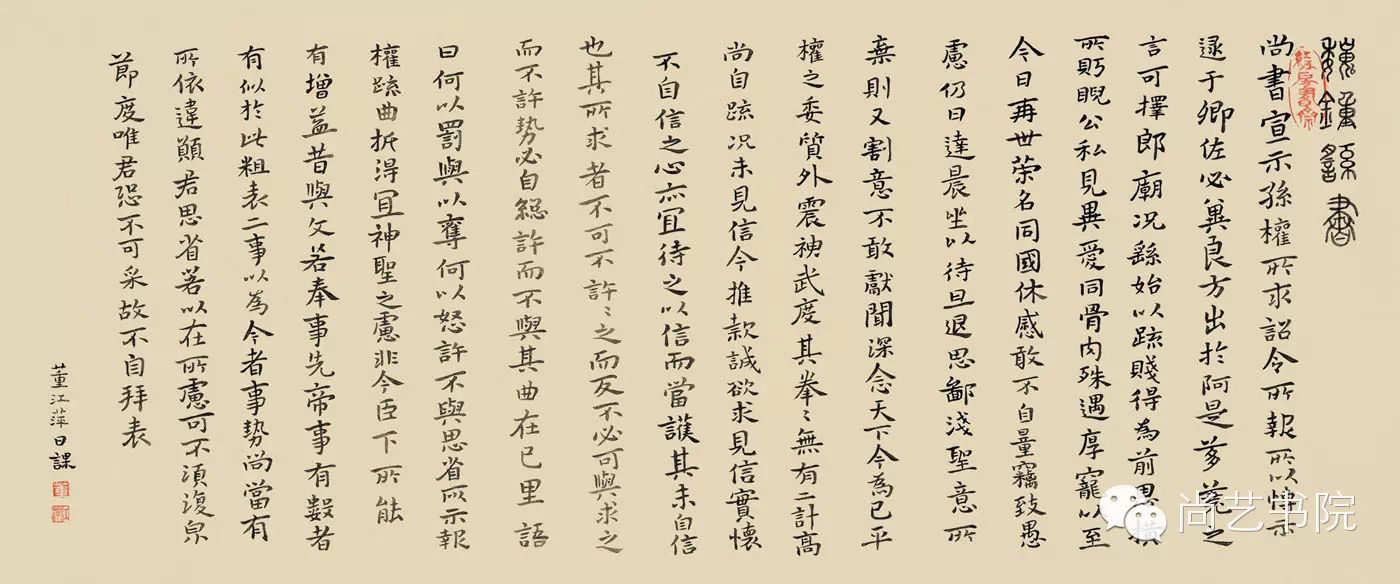 魏鍾繇書
尚書宣示孫權所求詔令所報所以博示
逮于卿佐必冀良方出於阿是芻蕘之
言可擇郎廟況繇始以疏賤得為前恩橫
所眄睨公私見異愛同骨肉殊遇厚寵以至
今日再世榮名同國休慼敢不自量竊致愚
慮仍日達晨坐以待旦退思鄙淺聖意所
棄則又割意不敢獻聞深念天下今為已平
權之委質外震神武度其拳〻無有二計高
尚自疏況未見信今推款誠欲求見信實懷
不自信之心亦宜待之以信而當護其未自信
也其所求者不可不許〻之而反不必可與求之
而不許勢必自絕許而不與其曲在己里語
曰何以罰與以奪何以怒許不與思省所示報
權疏曲折得宜神聖之慮非今臣下所能
有增益昔與文若奉事先帝事有數者
有似於此粗表二事以為今者事勢尚當有
所依違願君思省若以在所慮可不須復㒵
節度唯君恐不可采故不自拜表
董江萍日課
尚艺书院